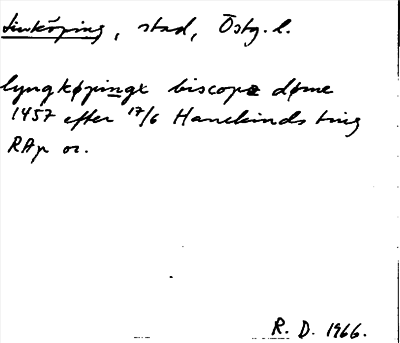 Linköping, stad, Östg. l.
lyngkøpingx biscops døme
1457 efter 17/6 Hanekinds ting
RAp or.
R. D. 1966.